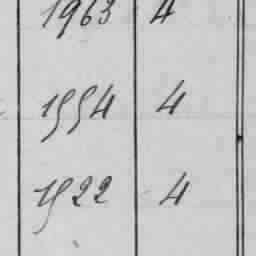 1963 4
1554 4
1522 4